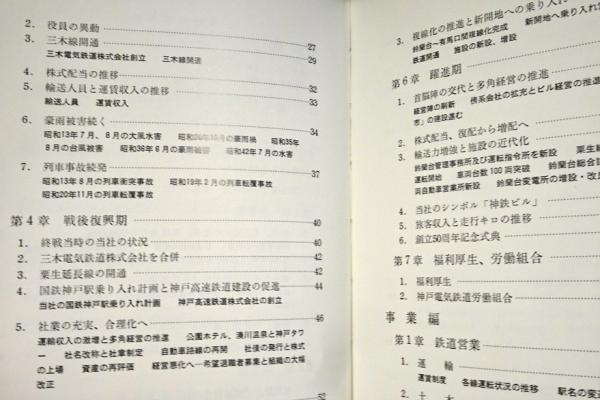 2. 役員の異動 27
3. 三木線開通 29
三木電気鉄道株式会社創立 三木線開通
4. 株式配当の推移 32
5. 輸送人員と運賃収入の推移 33
輸送人員 運賃収入
6. 豪雨被害続く 34
昭和13年7月、8月の大風水害 昭和 年10月の豪雨禍 昭和35年
8月の台風被害 昭和36年6月の豪雨被害 昭和42年7月の水害
7. 列車事故続発 37
昭和13年8月の列車衝突事故 昭和19年2月の列車転覆事故
昭和20年11月の列車転覆事故
第4章 戦後復興期 40
1. 終戦当時の当社の状況 40
2. 三木電気鉄道株式会社を合併 42
3. 粟生延長線の開通 42
4. 国鉄神戸駅乗り入れ計画と神戸高速鉄道建設の促進 44
当社の国鉄神戸駅乗り入れ計画 神戸高速鉄道株式会社の創立
5. 社業の充実、合理化へ 46
運輸収入の激増と多角経営の推進 公園ホテル、湊川温泉と神戸タワ
ー 社名改称と社章制定 自動車路線の再開 社債の発行と株式
の上場 資産の再評価 経営悪化へ―希望退職者募集と組織の大幅
改正
52
3. 複線化の推進と新開地への乗り入れ
鈴蘭台〜有馬口間複線化完成 新開地へ乗り入れ
鉄道開通 施設の新設、増設
第6章 躍進期
1. 首脳陣の交代と多角経営の推進
経営陣の刷新 傍系会社の拡充とビル経営の推
市」の建設進む
2. 株式配当、復配から増配へ
3. 輸送力増強と施設の近代化
鈴蘭台管理事務所及び運転指令所を新設 粟生線
運転開始 車両台数100両突破 鈴蘭台総合
両自動車営業所新設 鈴蘭台変電所の増設・改
4. 当社のシンボル「神鉄ビル」
5. 旅客収入と走行キロの推移
6. 創立50周年記念式典
第7章 福利厚生、労働組合
1. 福利厚生
2. 神戸電気鉄道労働組合
事業編
第1章 鉄道営業
1. 運輸
運賃制度 各線運転状況の推移 駅名の変
2. 土木